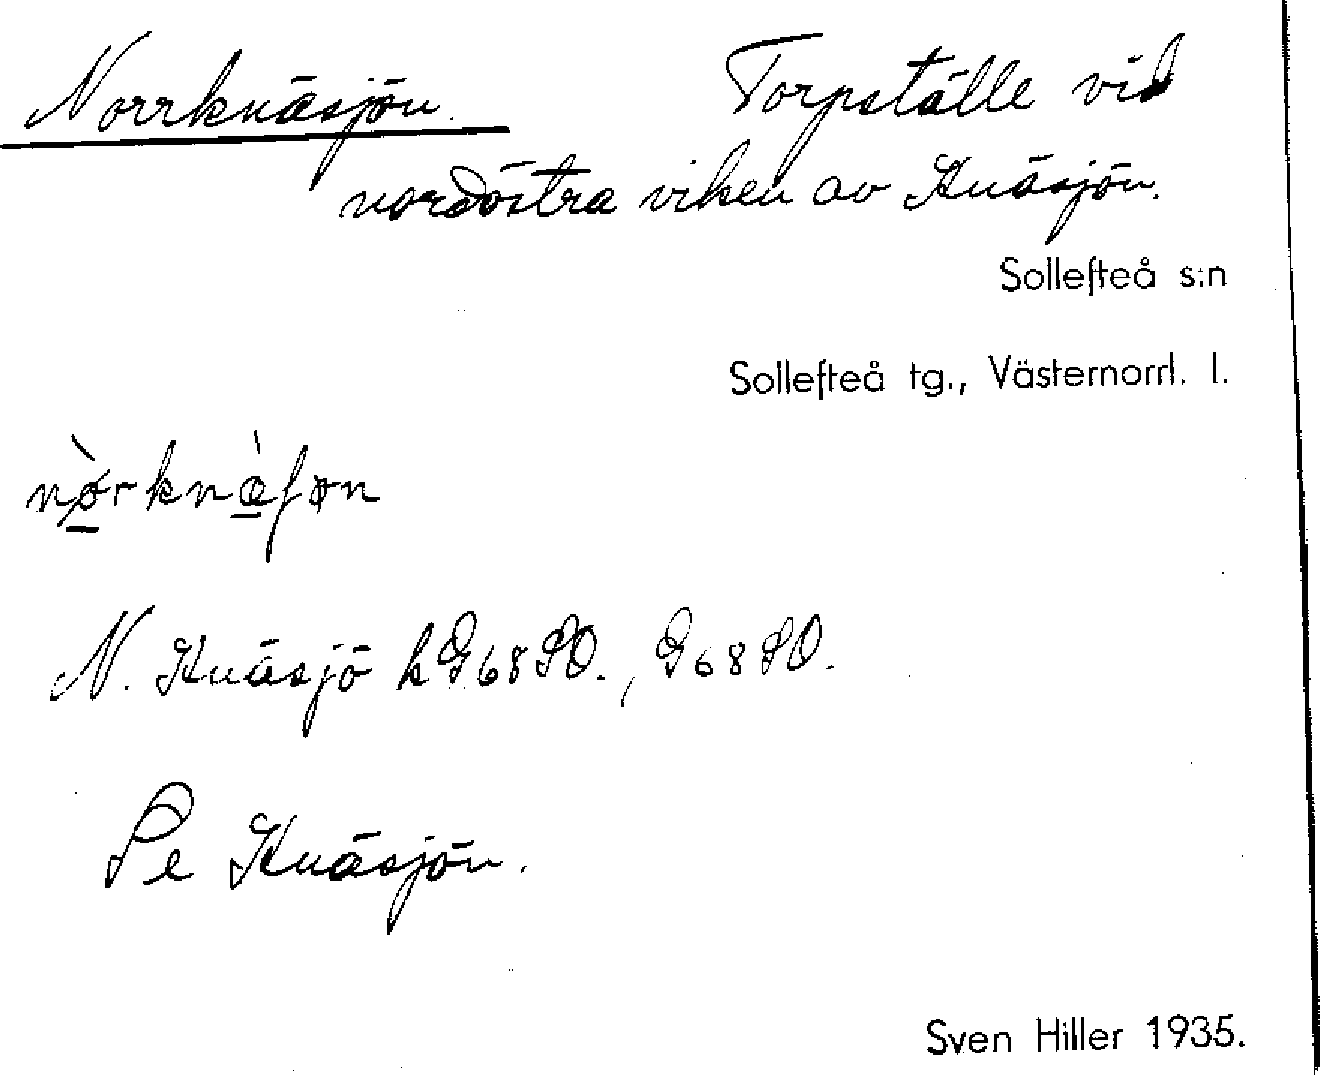 Norrknäsjön. Torpställe vid
nordöstra viken av Knäsjön.
Sollefteå s:n
Sollefteå tg., Västernorrl. l.
N. Knäsjö k G68SO., G68SO.
Se Knäsjön.
Sven Hiller 1935.